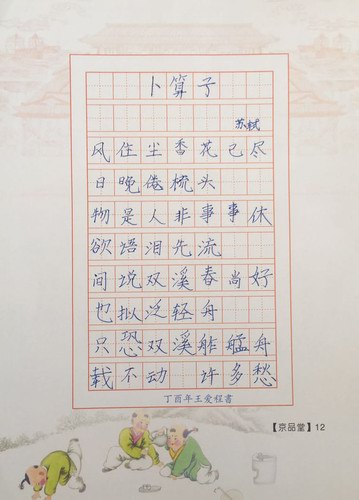 卜算子
苏轼
风住尘香花已尽
日晚倦梳头
物是人非事事休
欲语泪先流
闻说双溪春尚好
也拟泛轻舟
只恐双溪舴艋舟
载不动 许多愁
丁酉年王爱程書
【京品堂】12